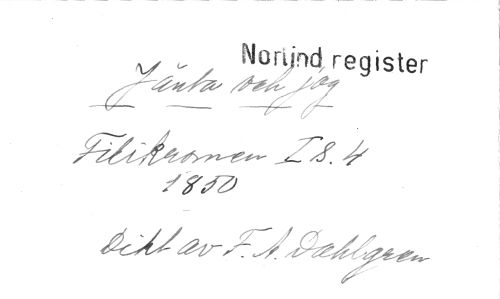 Norlind register
Jänta och jag
Filikromen I S. 4
1850
Dikt av F. A. Dahlgren